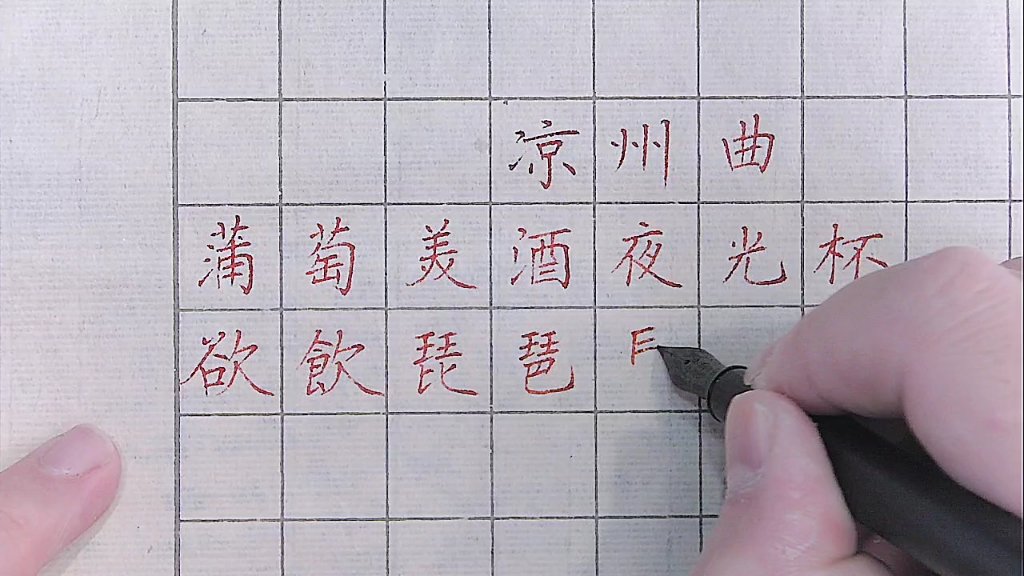 凉州曲
蒲萄美酒夜光杯
欲飲琵琶